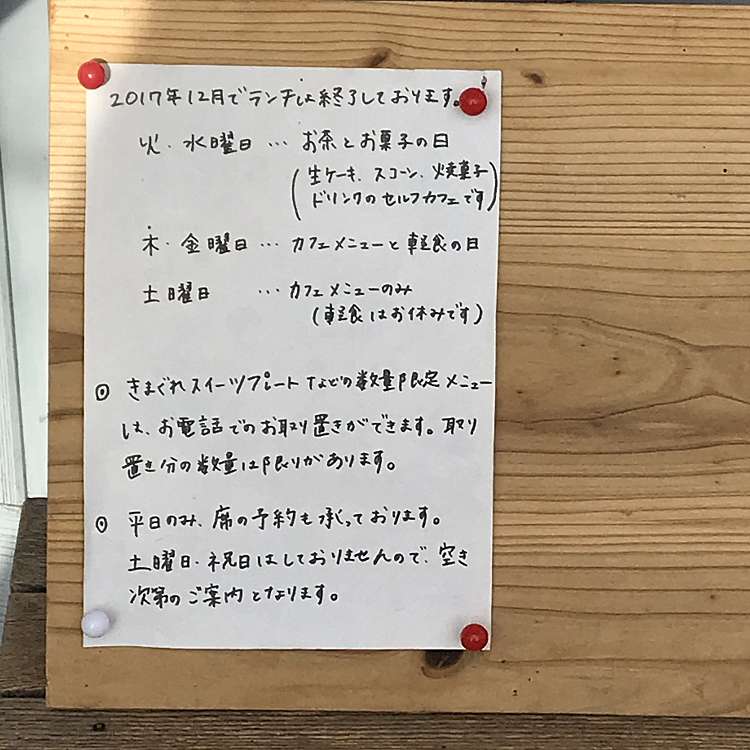 2017年12月でランチは終了しております。
火・水曜日…お茶とお菓子の日
(生ケーキ、スコーン、焼菓子
ドリンクのセルフカフェです)
木・金曜日…カフェメニューと軽食の日
土曜日 …カフェメニューのみ
(軽食はお休みです)
◎ きまぐれスイーツプレートなどの数量限定メニュー
は、お電話でのお取り置きができます。取り
置き分の数量は限りがあります。
◎ 平日のみ、席の予約も承っております。
土曜日・祝日はしておりませんので、空き
次第のご案内となります。